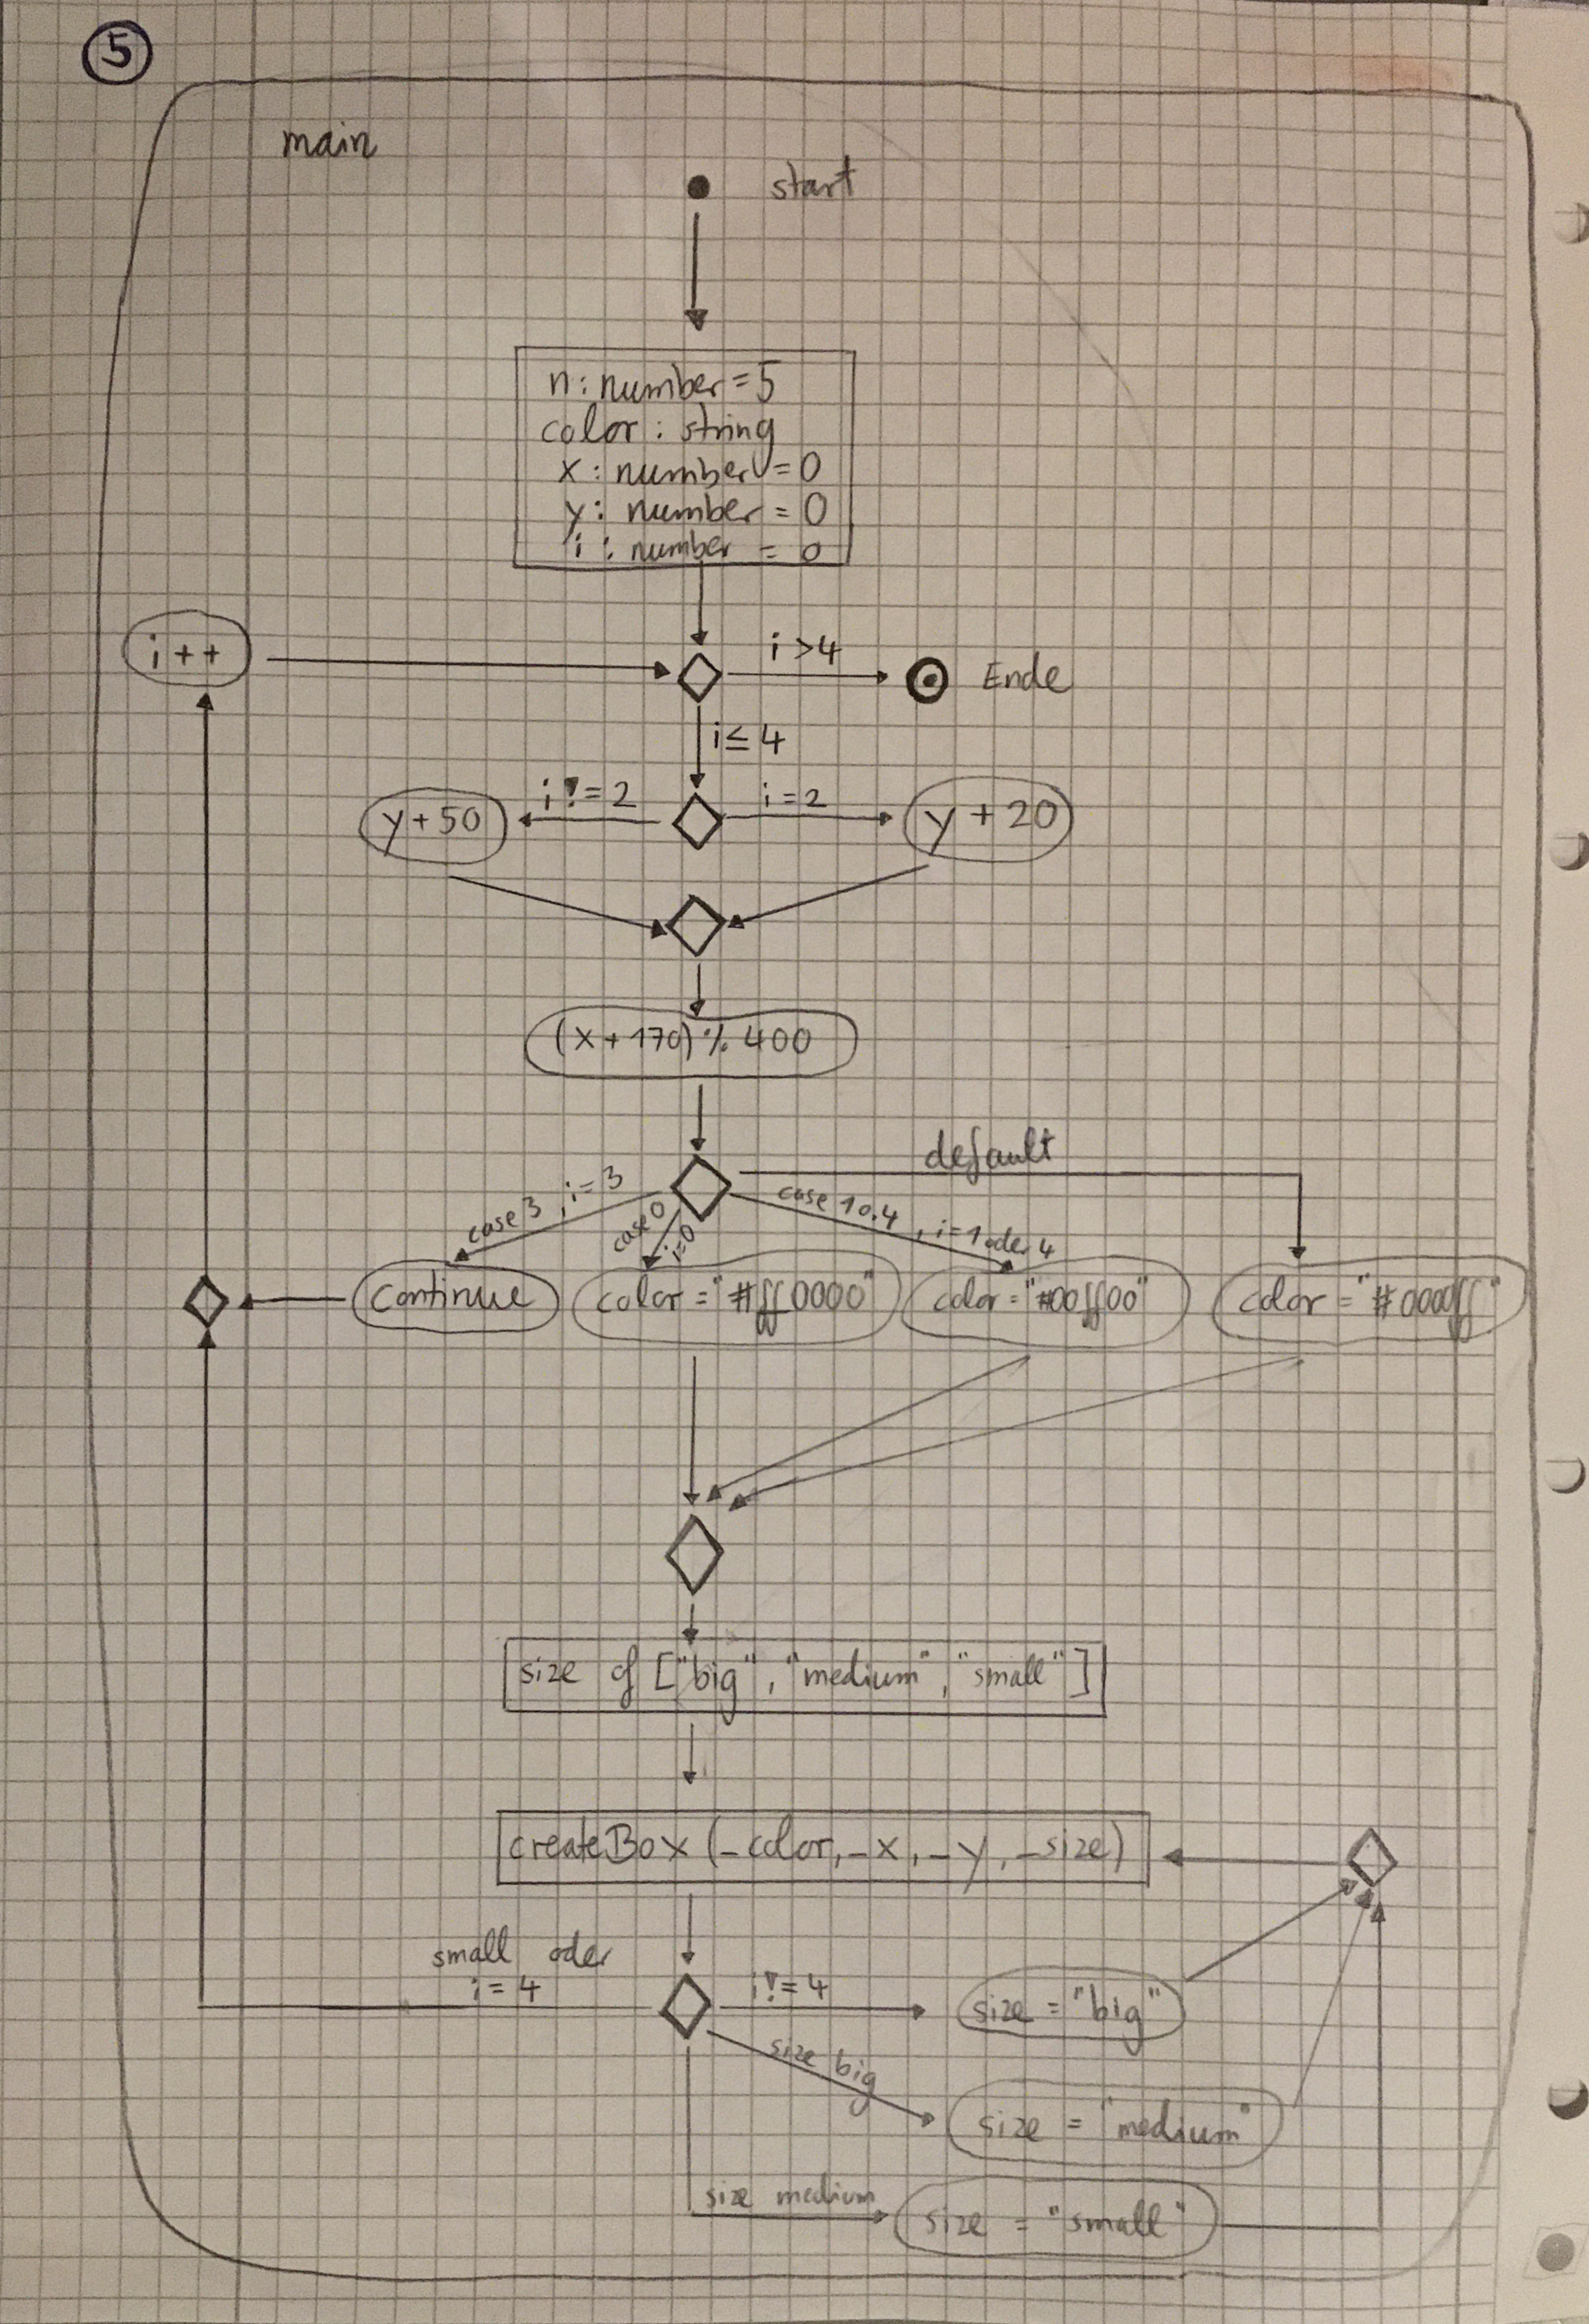 5
main
start
n: number = 5
color: string
x: number = 0
y: number = 0
i: number = 0
i++
i > 4
Ende
i ≤ 4
y + 50
i != 2
i = 2
y + 20
(x + 170) % 400
default
case 3, i = 3
case 0
i = 0
case 1 o. 4, i = 1 oder 4
continue
color = "#ff0000"
color = "#00ff00"
color = "#0000ff"
size of ["big", "medium", "small"]
createBox (_color, _x, _y, _size)
small oder
i = 4
i != 4
size = "big"
size big
size = "medium"
size medium
size = "small"